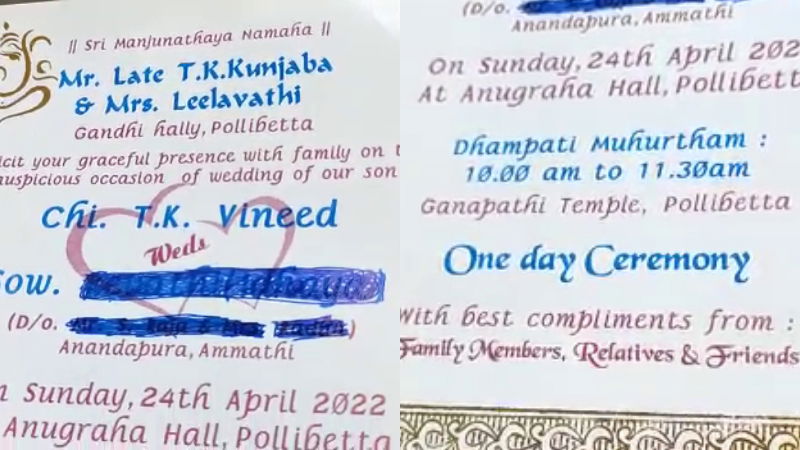 || Sri Manjunathaya Namaha ||
Mr. Late T.K.Kunjaba
& Mrs. Leelavathi
Gandhi hally, Pollibetta
icit your graceful presence with family on t
auspicious occasion of wedding of our son
Chi. T.K. Vineed
Weds
Sow.
(D/o.
Anandapura, Ammathi
n Sunday, 24th April 2022
Anugraha Hall, Pollibetta
(D/o.
Anandapura, Ammathi
On Sunday, 24th April 202
At Anugraha Hall, Pollibett
Dhampati Muhurtham :
10.00 am to 11.30am
Ganapathi Temple, Pollibetta
One day Ceremony
With best compliments from :
Family Members, Relatives & Friends